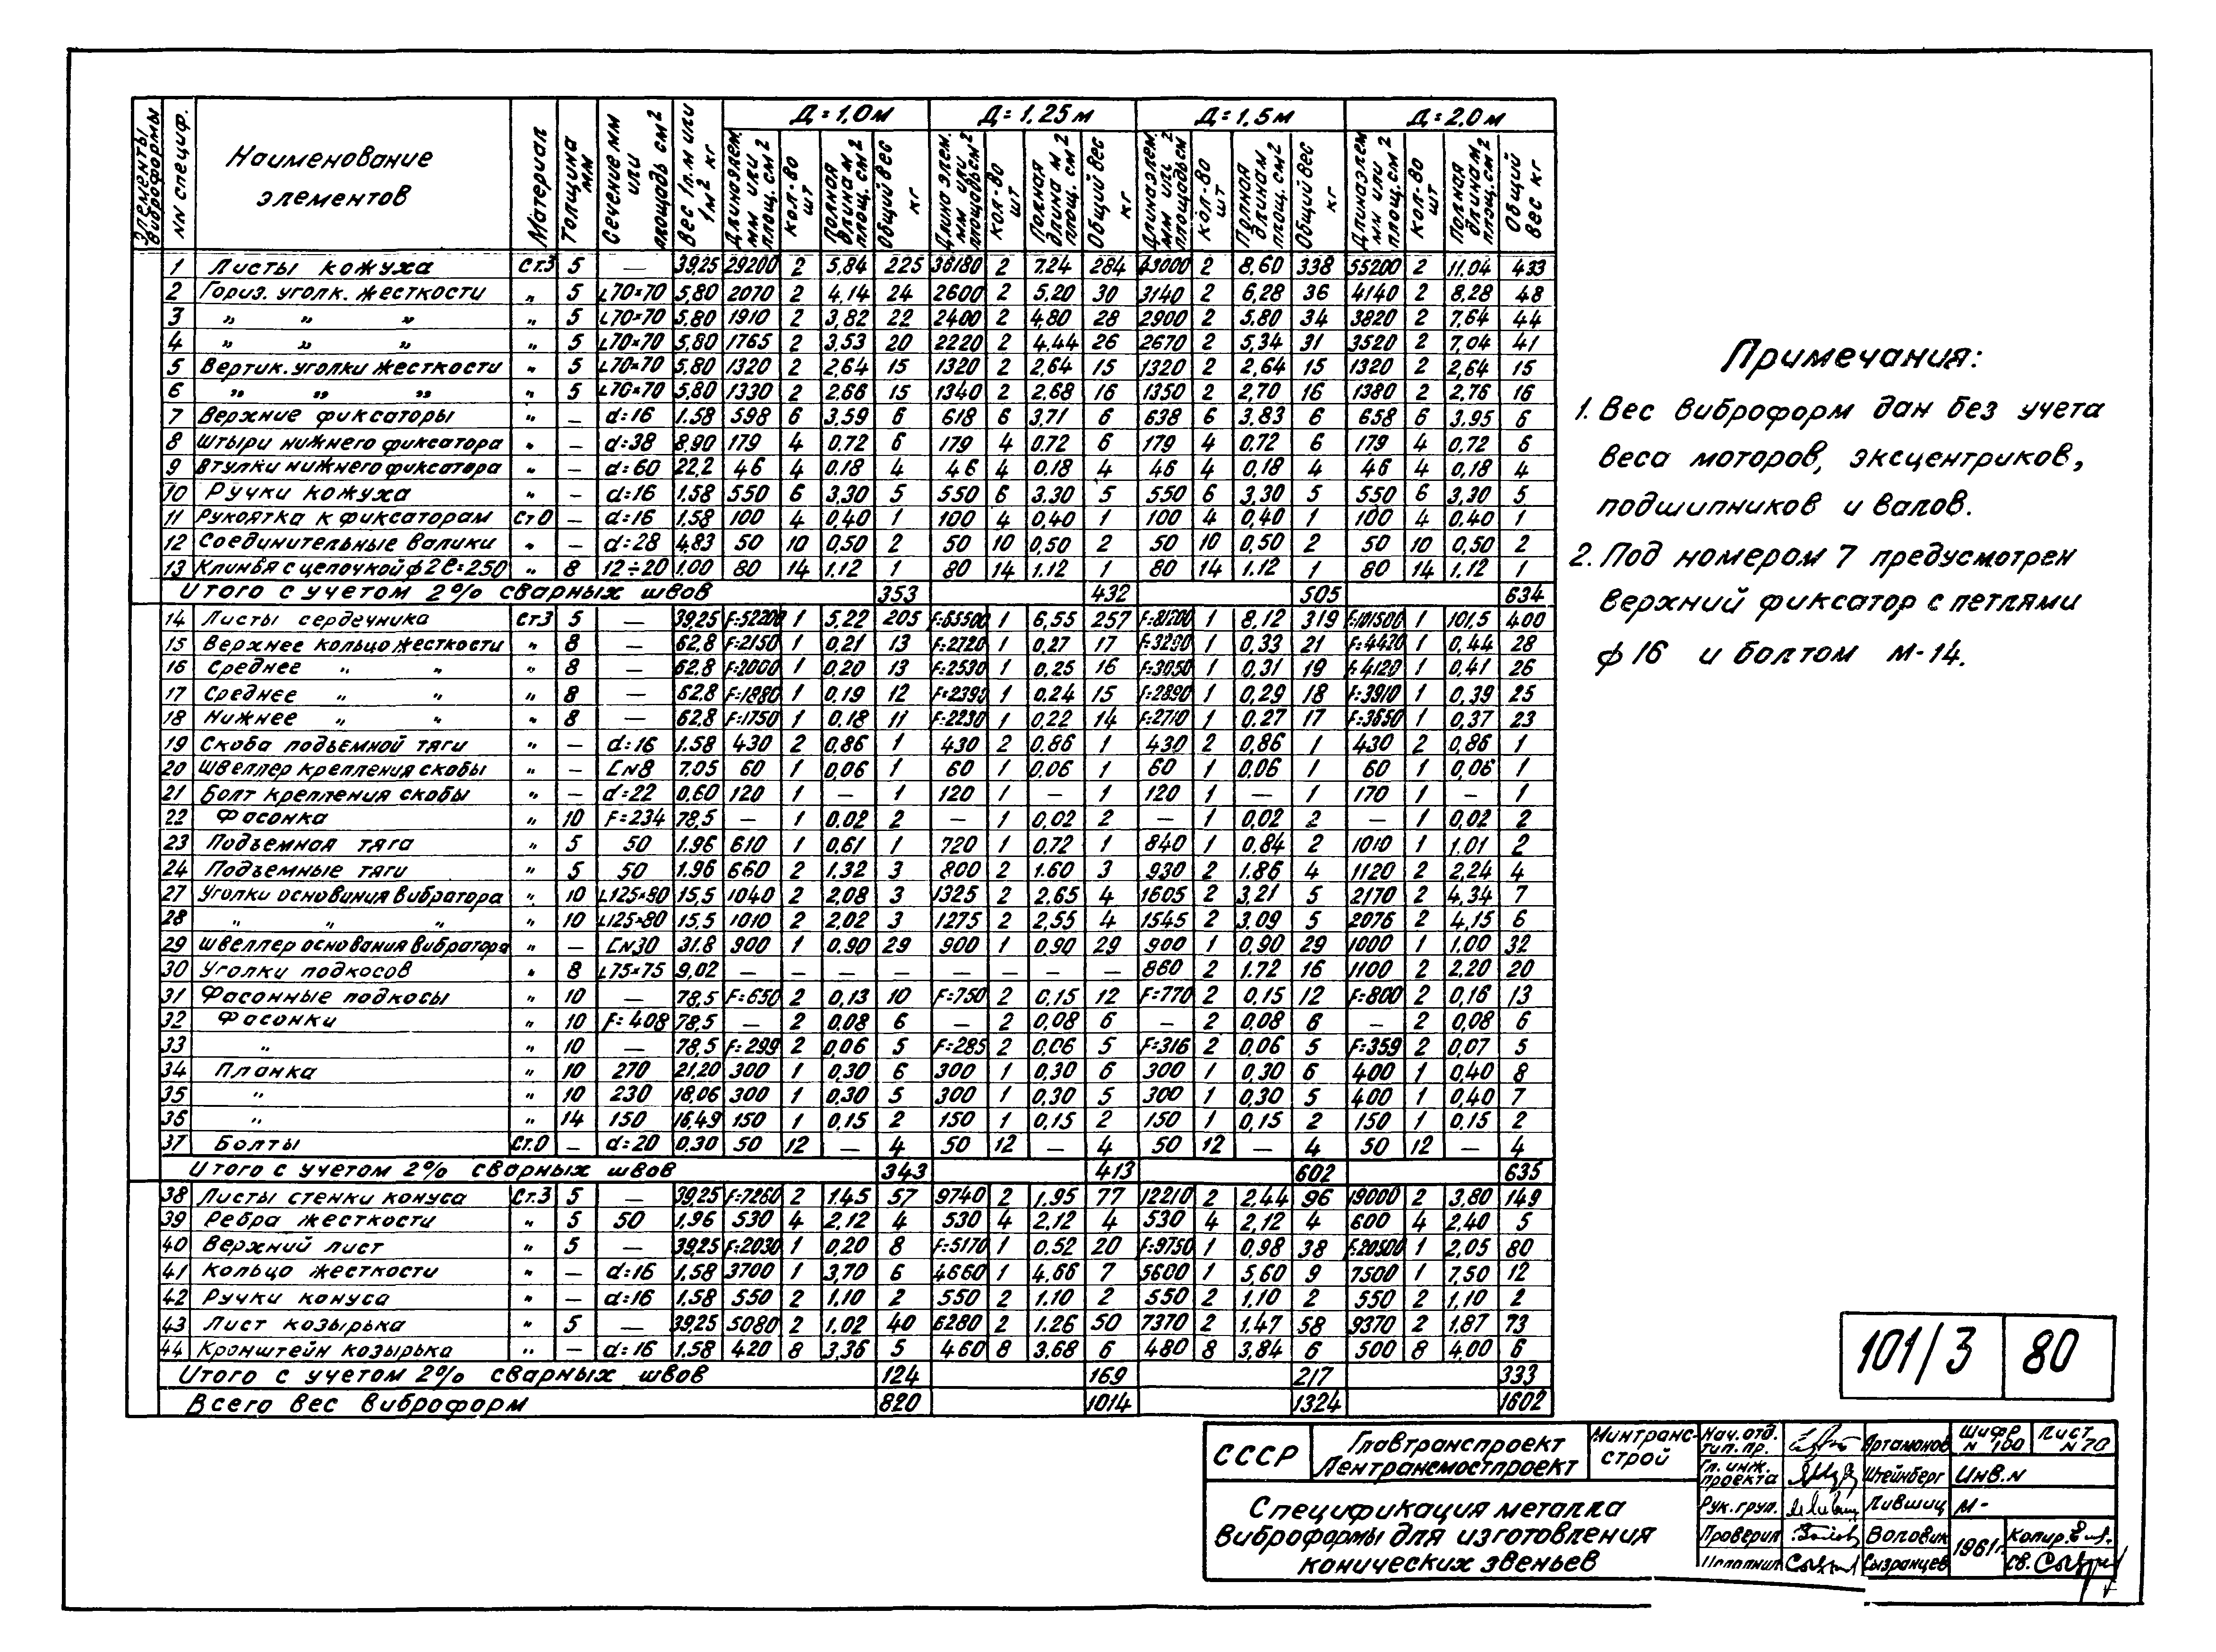 Элементы виброформы | NN специф. | Наименование элементов | Материал | Толщина мм | Сечение мм или площадь см² | Вес 1п.м или 1м², кг | Д=1,0м | Д=1,25м | Д=1,5м | Д=2,0м
Длина элем. мм или площ. см² | Кол-во шт | Полная длина м площ. см² | Общий вес кг | Длина элем. мм или площадь см² | Кол-во шт | Полная длина м площ. см² | Общий вес кг | Длина элем. мм или площадь см² | Кол-во шт | Полная длина м площ. см² | Общий вес кг | Длина элем мм или площ. см² | Кол-во шт | Полная длина м площ. см² | Общий вес кг
1 Листы кожуха Ст.3 5 — 39,25 29200 2 5,84 225 36180 2 7.24 284 43000 2 8,60 338 55200 2 11,04 433
2 Гориз. уголк. жесткости „ 5 L70×70 5,80 2070 2 4,14 24 2600 2 5,20 30 3140 2 6,28 36 4140 2 8,28 48
3 „ „ „ „ 5 L70×70 5,80 1910 2 3,82 22 2400 2 4,80 28 2900 2 5,80 34 3820 2 7,64 44
4 „ „ „ „ 5 L70×70 5,80 1765 2 3,53 20 2220 2 4,44 26 2670 2 5,34 31 3520 2 7,04 41
5 Вертик. уголки жесткости „ 5 L70×70 5,80 1320 2 2,64 15 1320 2 2,64 15 1320 2 2,64 15 1320 2 2,64 15
6 „ „ „ „ 5 L70×70 5,80 1330 2 2.66 15 1340 2 2.68 16 1350 2 2,70 16 1380 2 2,76 16
7 Верхние фиксаторы „ — d=16 1.58 598 6 3.59 6 618 6 3,71 6 638 6 3,83 6 658 6 3.95 6
8 Штыри нижнего фиксатора „ — d=38 8,90 179 4 0.72 6 179 4 0.72 6 179 4 0,72 6 179 4 0,72 6
9 Втулки нижнего фиксатора „ — d=60 22,2 46 4 0.18 4 46 4 0.18 4 46 4 0,18 4 46 4 0,18 4
10 Ручки кожуха „ — d=16 1.58 550 6 3,30 5 550 6 3.30 5 550 6 3,30 5 550 6 3,30 5
11 Рукоятка к фиксаторам Ст0 — d=16 1,58 100 4 0,40 1 100 4 0,40 1 100 4 0,40 1 100 4 0.40 1
12 Соединительные валики „ — d=28 4,83 50 10 0,50 2 50 10 0,50 2 50 10 0,50 2 50 10 0,50 2
13 Клинья с цепочкой ф2 ℓ=250 „ 8 12÷20 1.00 80 14 1.12 1 80 14 1.12 1 80 14 1,12 1 80 14 1.12 1
Итого с учетом 2% сварных швов 353 432 505 634
14 Листы сердечника Ст.3 5 — 39,25 F=52200 1 5,22 205 F=65500 1 6,55 257 F=81200 1 8,12 319 F=101500 1 101,5 400
15 Верхнее кольцо жесткости „ 8 — 62,8 F=2150 1 0,21 13 F=2720 1 0,27 17 F=3290 1 0,33 21 F=4420 1 0,44 28
16 Среднее „ „ „ 8 — 62.8 F=2000 1 0,20 13 F=2530 1 0,25 16 F=3050 1 0,31 19 F=4120 1 0,41 26
17 Среднее „ „ „ 8 — 62.8 F=1880 1 0,19 12 F=2390 1 0.24 15 F=2890 1 0,29 18 F=3910 1 0,39 25
18 Нижнее „ „ „ 8 — 62,8 F=1750 1 0,18 11 F=2230 1 0,22 14 F=2710 1 0.27 17 F=3650 1 0,37 23
19 Скоба подъемной тяги „ — d=16 1.58 430 2 0,86 1 430 2 0,86 1 430 2 0,86 1 430 2 0,86 1
20 Швеллер крепления скобы „ — [N8 7.05 60 1 0,06 1 60 1 0.06 1 60 1 0,06 1 60 1 0,06 1
21 Болт крепления скобы „ — d=22 0,60 120 1 — 1 120 1 — 1 120 1 — 1 170 1 — 1
22 Фасонка „ 10 F=234 78,5 — 1 0.02 2 — 1 0,02 2 — 1 0,02 2 — 1 0,02 2
23 Подъемная тяга „ 5 50 1.96 610 1 0,61 1 720 1 0.72 1 840 1 0.84 2 1010 1 1.01 2
24 Подъемные тяги „ 5 50 1.96 660 2 1.32 3 800 2 1.60 3 930 2 1.86 4 1120 2 2,24 4
27 Уголки основания вибратора „ 10 L125×80 15,5 1040 2 2,08 3 1325 2 2,65 4 1605 2 3,21 5 2170 2 4,34 7
28 „ „ „ „ 10 L125×80 15,5 1010 2 2,02 3 1275 2 2,55 4 1545 2 3,09 5 2076 2 4,15 6
29 Швеллер основания вибратора „ — [N30 31.8 900 1 0.90 29 900 1 0,90 29 900 1 0,90 29 1000 1 1,00 32
30 Уголки подкосов „ 8 L75×75 9,02 — — — — — — — — 860 2 1.72 16 1100 2 2,20 20
31 Фасонные подкосы „ 10 — 78.5 F=650 2 0,13 10 F=750 2 0,15 12 F=770 2 0,15 12 F=800 2 0,16 13
32 Фасонки „ 10 F=408 78,5 — 2 0.08 6 — 2 0,08 6 — 2 0,08 6 — 2 0,08 6
33 „ „ 10 — 78,5 F=299 2 0,06 5 F=285 2 0,06 5 F=316 2 0,06 5 F=359 2 0,07 5
34 Планка „ 10 270 21,20 300 1 0,30 6 300 1 0,30 6 300 1 0,30 6 400 1 0,40 8
35 „ „ 10 230 18,06 300 1 0,30 5 300 1 0,30 5 300 1 0,30 5 400 1 0,40 7
36 „ „ 14 150 16,49 150 1 0,15 2 150 1 0,15 2 150 1 0,15 2 150 1 0,15 2
37 Болты Ст.0 — d=20 0,30 50 12 — 4 50 12 — 4 50 12 — 4 50 12 — 4
Итого с учетом 2% сварных швов 343 413 602 635
38 Листы стенки конуса Ст.3 5 — 39,25 F=7260 2 1.45 57 9740 2 1.95 77 12210 2 2.44 96 19000 2 3,80 149
39 Ребра жесткости „ 5 50 1,96 530 4 2,12 4 530 4 2,12 4 530 4 2,12 4 600 4 2,40 5
40 Верхний лист „ 5 — 39,25 F=2030 1 0,20 8 F=5170 1 0.52 20 F=9750 1 0,98 38 F=20500 1 2,05 80
41 Кольцо жесткости „ — d=16 1.58 3700 1 3,70 6 4660 1 4.66 7 5600 1 5,60 9 7500 1 7,50 12
42 Ручки конуса „ — d=16 1.58 550 2 1.10 2 550 2 1.10 2 550 2 1,10 2 550 2 1,10 2
43 Лист козырька „ 5 — 39,25 5080 2 1.02 40 6280 2 1.26 50 7370 2 1,47 58 9370 2 1,87 73
44 Кронштейн козырька „ — d=16 1.58 420 8 3,36 5 460 8 3.68 6 480 8 3,84 6 500 8 4,00 6
Итого с учетом 2% сварных швов 124 169 217 333
Всего вес виброформ 820 1014 1324 1602
Примечания:
1. Вес виброформ дан без учета
веса моторов, эксцентриков,
подшипников и валов.
2. Под номером 7 предусмотрен
верхний фиксатор с петлями
ф 16 и болтом М-14.
101/3 80
СССР
Главтранспроект
Лентрансмостпроект
Минтранс-
строй
Спецификация металла
виброформы для изготовления
конических звеньев
Нач. отд. тип. пр. Артамонов Шифр N 100 Лист N 70
Гл. инж. проекта Штейнберг Инв. N
Рук. груп. Лившиц М-
Проверил Воловик 1961г. Копир.
Исполнил Сызранцев Св.